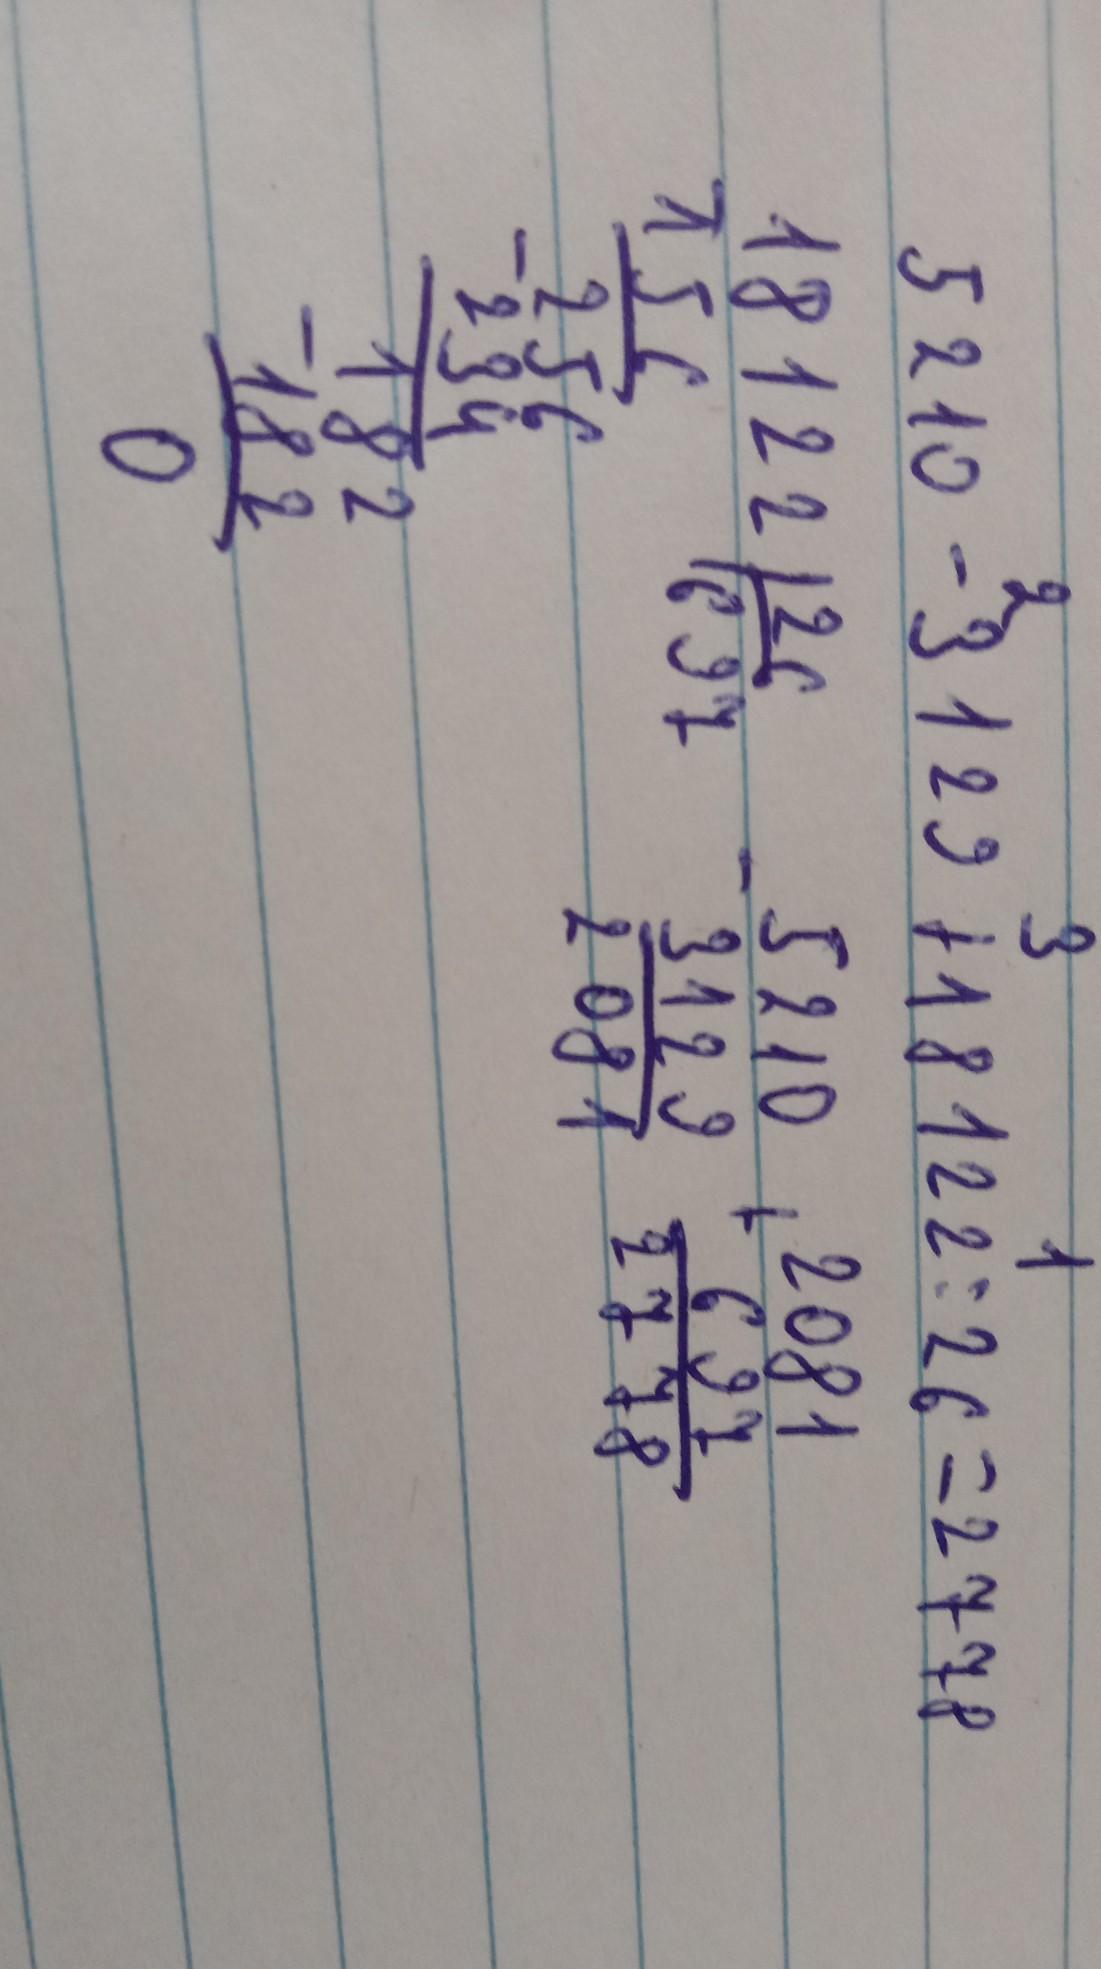 2 3 1
5210 - 3129 + 18122 : 26 = 2778
18122 | 26
- 156 | 697
256
- 234
182
- 182
0
- 5210
3129
2081
+ 2081
697
2778